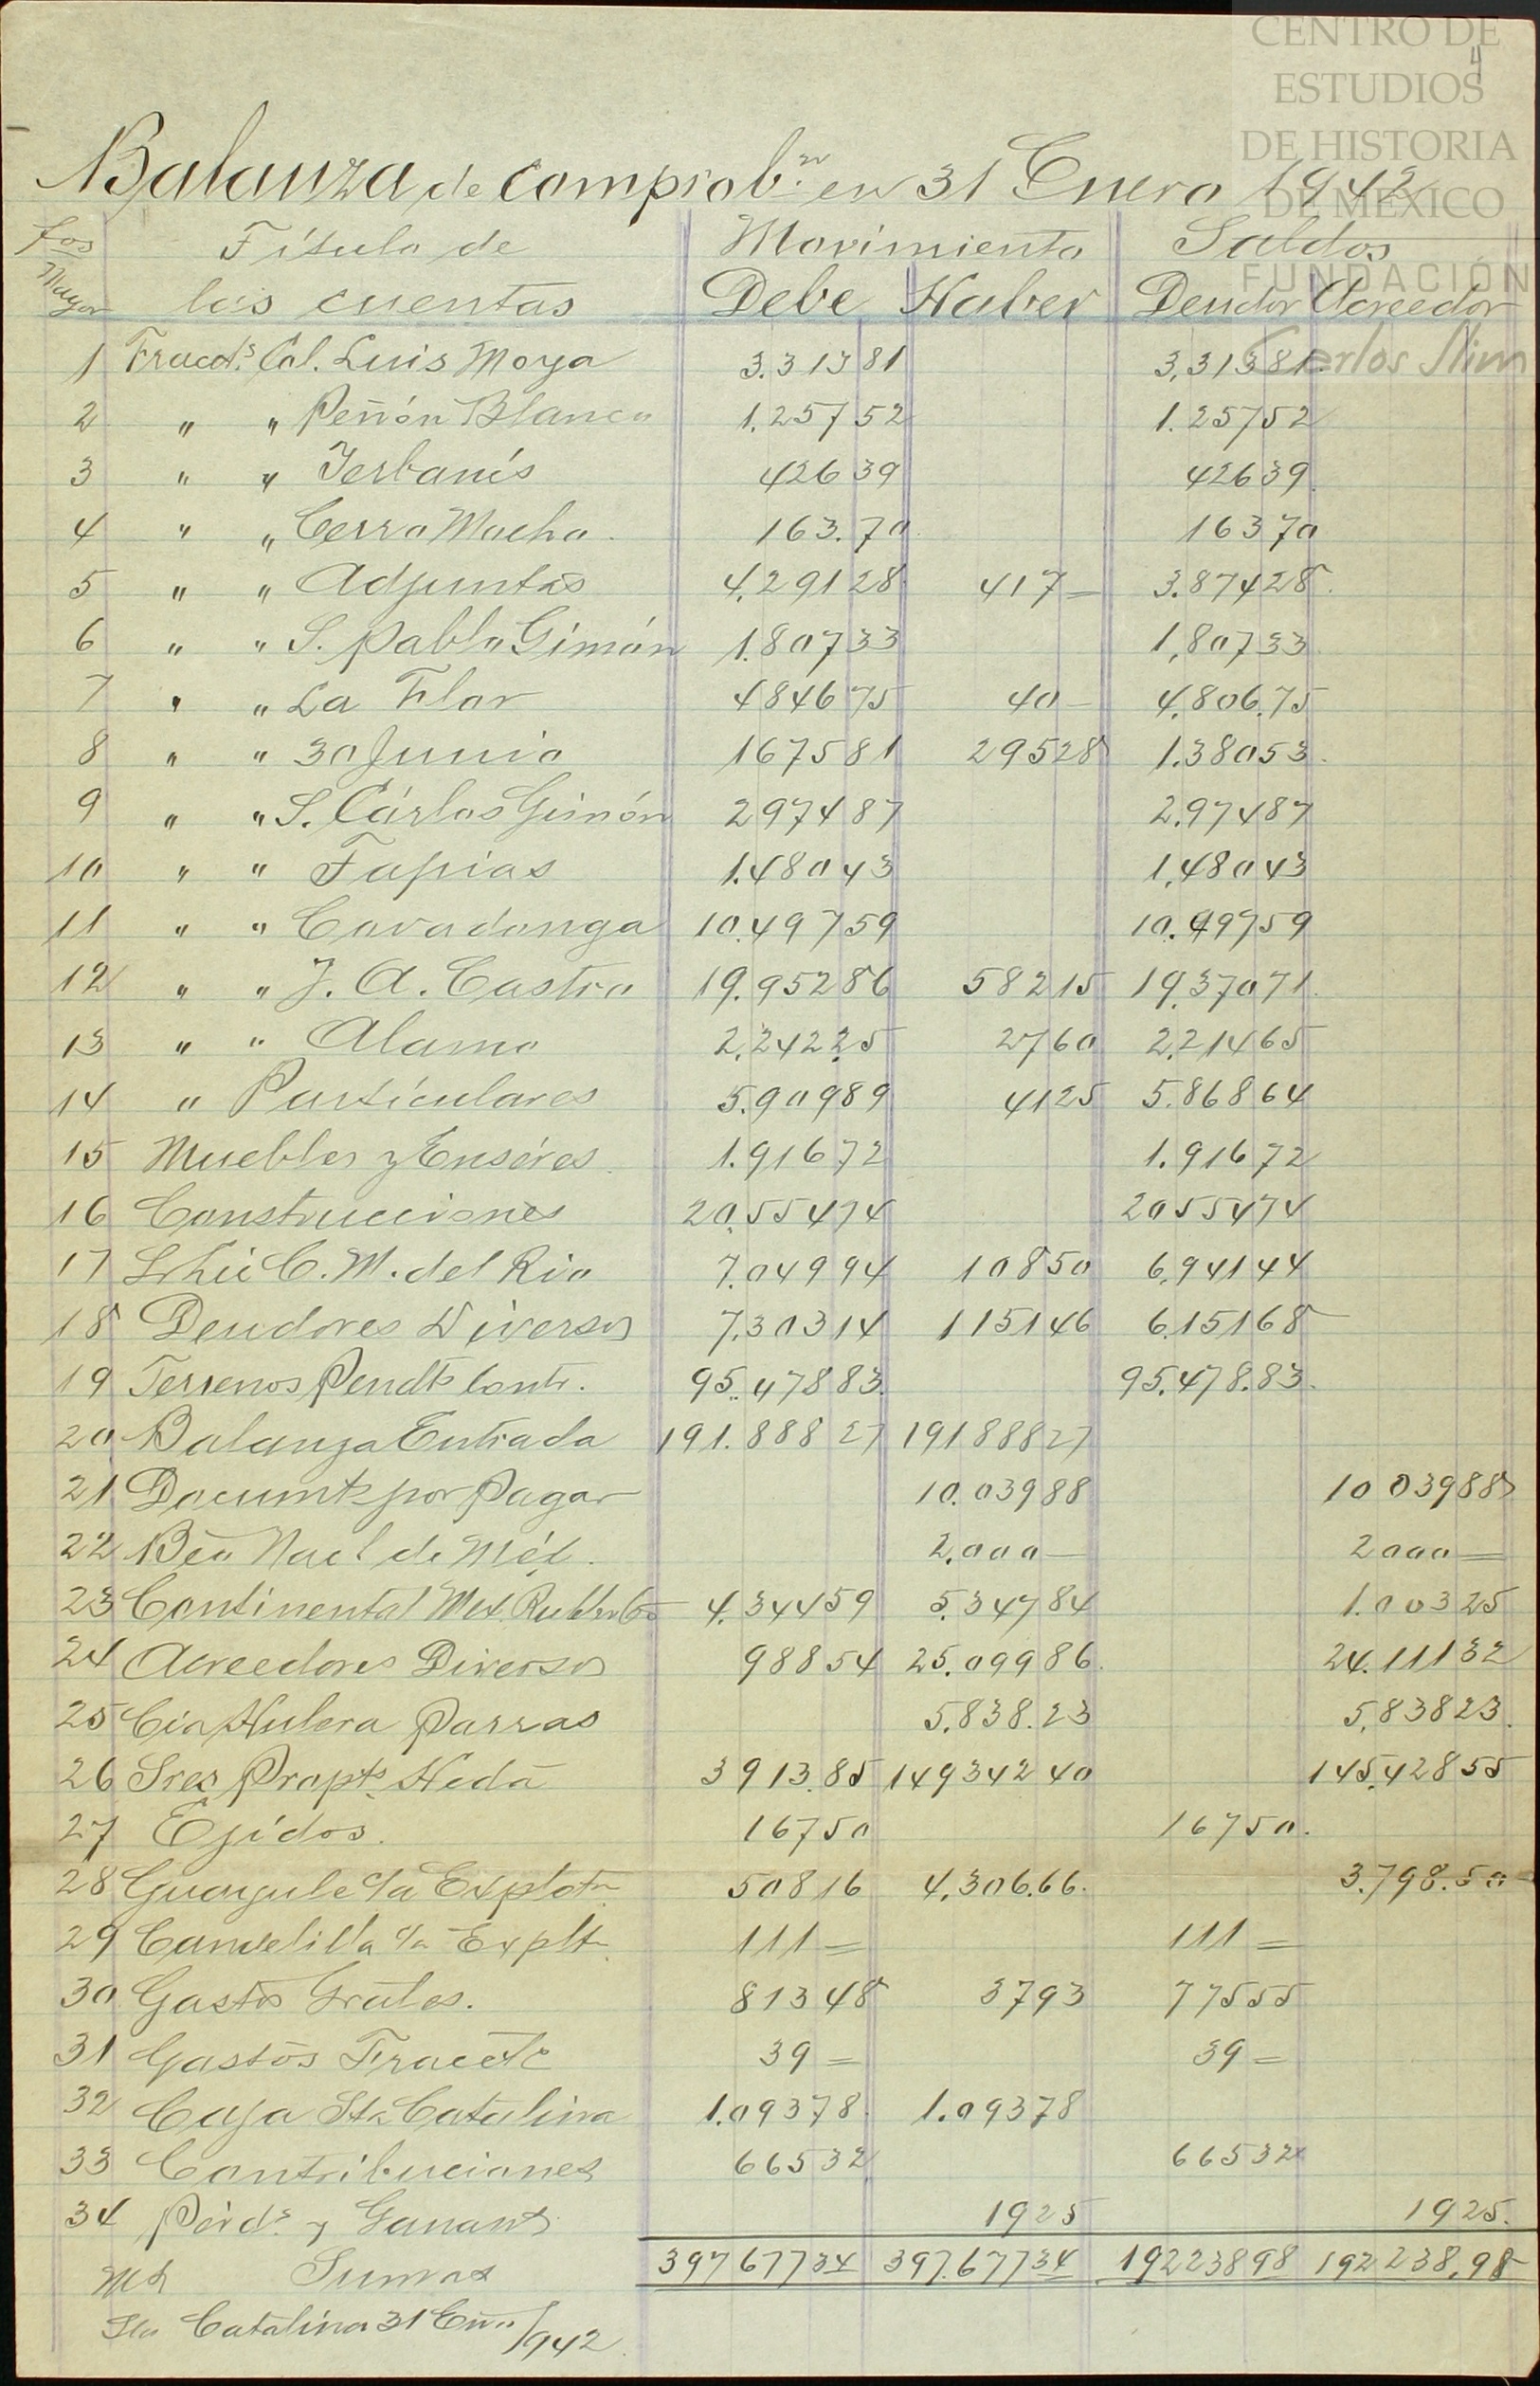 CENTRO DE
ESTUDIOS
DE HISTORIA
DE MEXICO
FUNDACIÓN
Carlos Slim
4
Balanza de comprobn. en 31 Enero 1942
Fos Título de Movimiento Saldos
Mayor las cuentas Debe Haber Deudor Acreedor
1 Fracds. Col. Luis Moya 3.313 81 3,313 81
2 " " Peñón Blanco 1,257 52 1.257 52
3 " " Yerbanís 426 39 426 39
4 " " Cerro Macho. 163.70 163 70
5 " " Adjuntas 4,291 28 417 = 3.874 28
6 " " S. Pablo Gimón 1.807 33 1,807 33
7 " " La Flor 4846 75 40 - 4,806.75
8 " " 30 Junio 1675 81 295 28 1.380 53
9 " " S. Cárlos Gimón 2974 87 2.974 87
10 " " Tapias 1.480 43 1,480 43
11 " " Covadonga 10.497 59 10.497 59
12 " " J. A. Castro 19.952 86 582 15 19,370 71
13 " " Alamo 2,242.25 27 60 2,214 65
14 " Particulares 5.909 89 41 25 5.868 64
15 Muebles y Enséres. 1.916 72 1.916 72
16 Construcciones 20,554 74 20554 74
17 C. M. del Rio 7.049 94 108 50 6,941 44
18 Deudores Diversos 7,303 14 1151 46 6,151 68
19 Terrenos Pendts Contr. 95.478 83 95.478.83
20 Balanza Entrada 191.888 27 191888 27
21 Documts por Pagar 10.039 88 10 039 88
22 Bco Nacl de Méx. 2,000 — 2000 =
23 Continental Mex. Rubber Co 4.344 59 5.347 84 1.003 25
24 Acreedores Diversos 988 54 25.099 86 24.111 32
25 Cia Hulera Parras 5.838.23 5,838 23
26 Sres Propts. Hcda 3913.85 149342 40 145,428 55
27 Ejidos. 167 50 167 50.
28 Guayule c/a Explotn 508 16 4,306.66. 3.798.50
29 Candelilla c/a Explt 111 = 111 =
30 Gastos Grales. 813 48 37 93 775 55
31 Gastos 39 = 39 =
32 Caja Sta Catalina 1.093 78 1.093 78
33 Contribuciones 665 32 665 32
34 Pérds. y Gananc 19 25 19 25.
Sumas 397677 34 397.677 34 192238 98 192 238.98
Sta Catalina 31 Eno/942